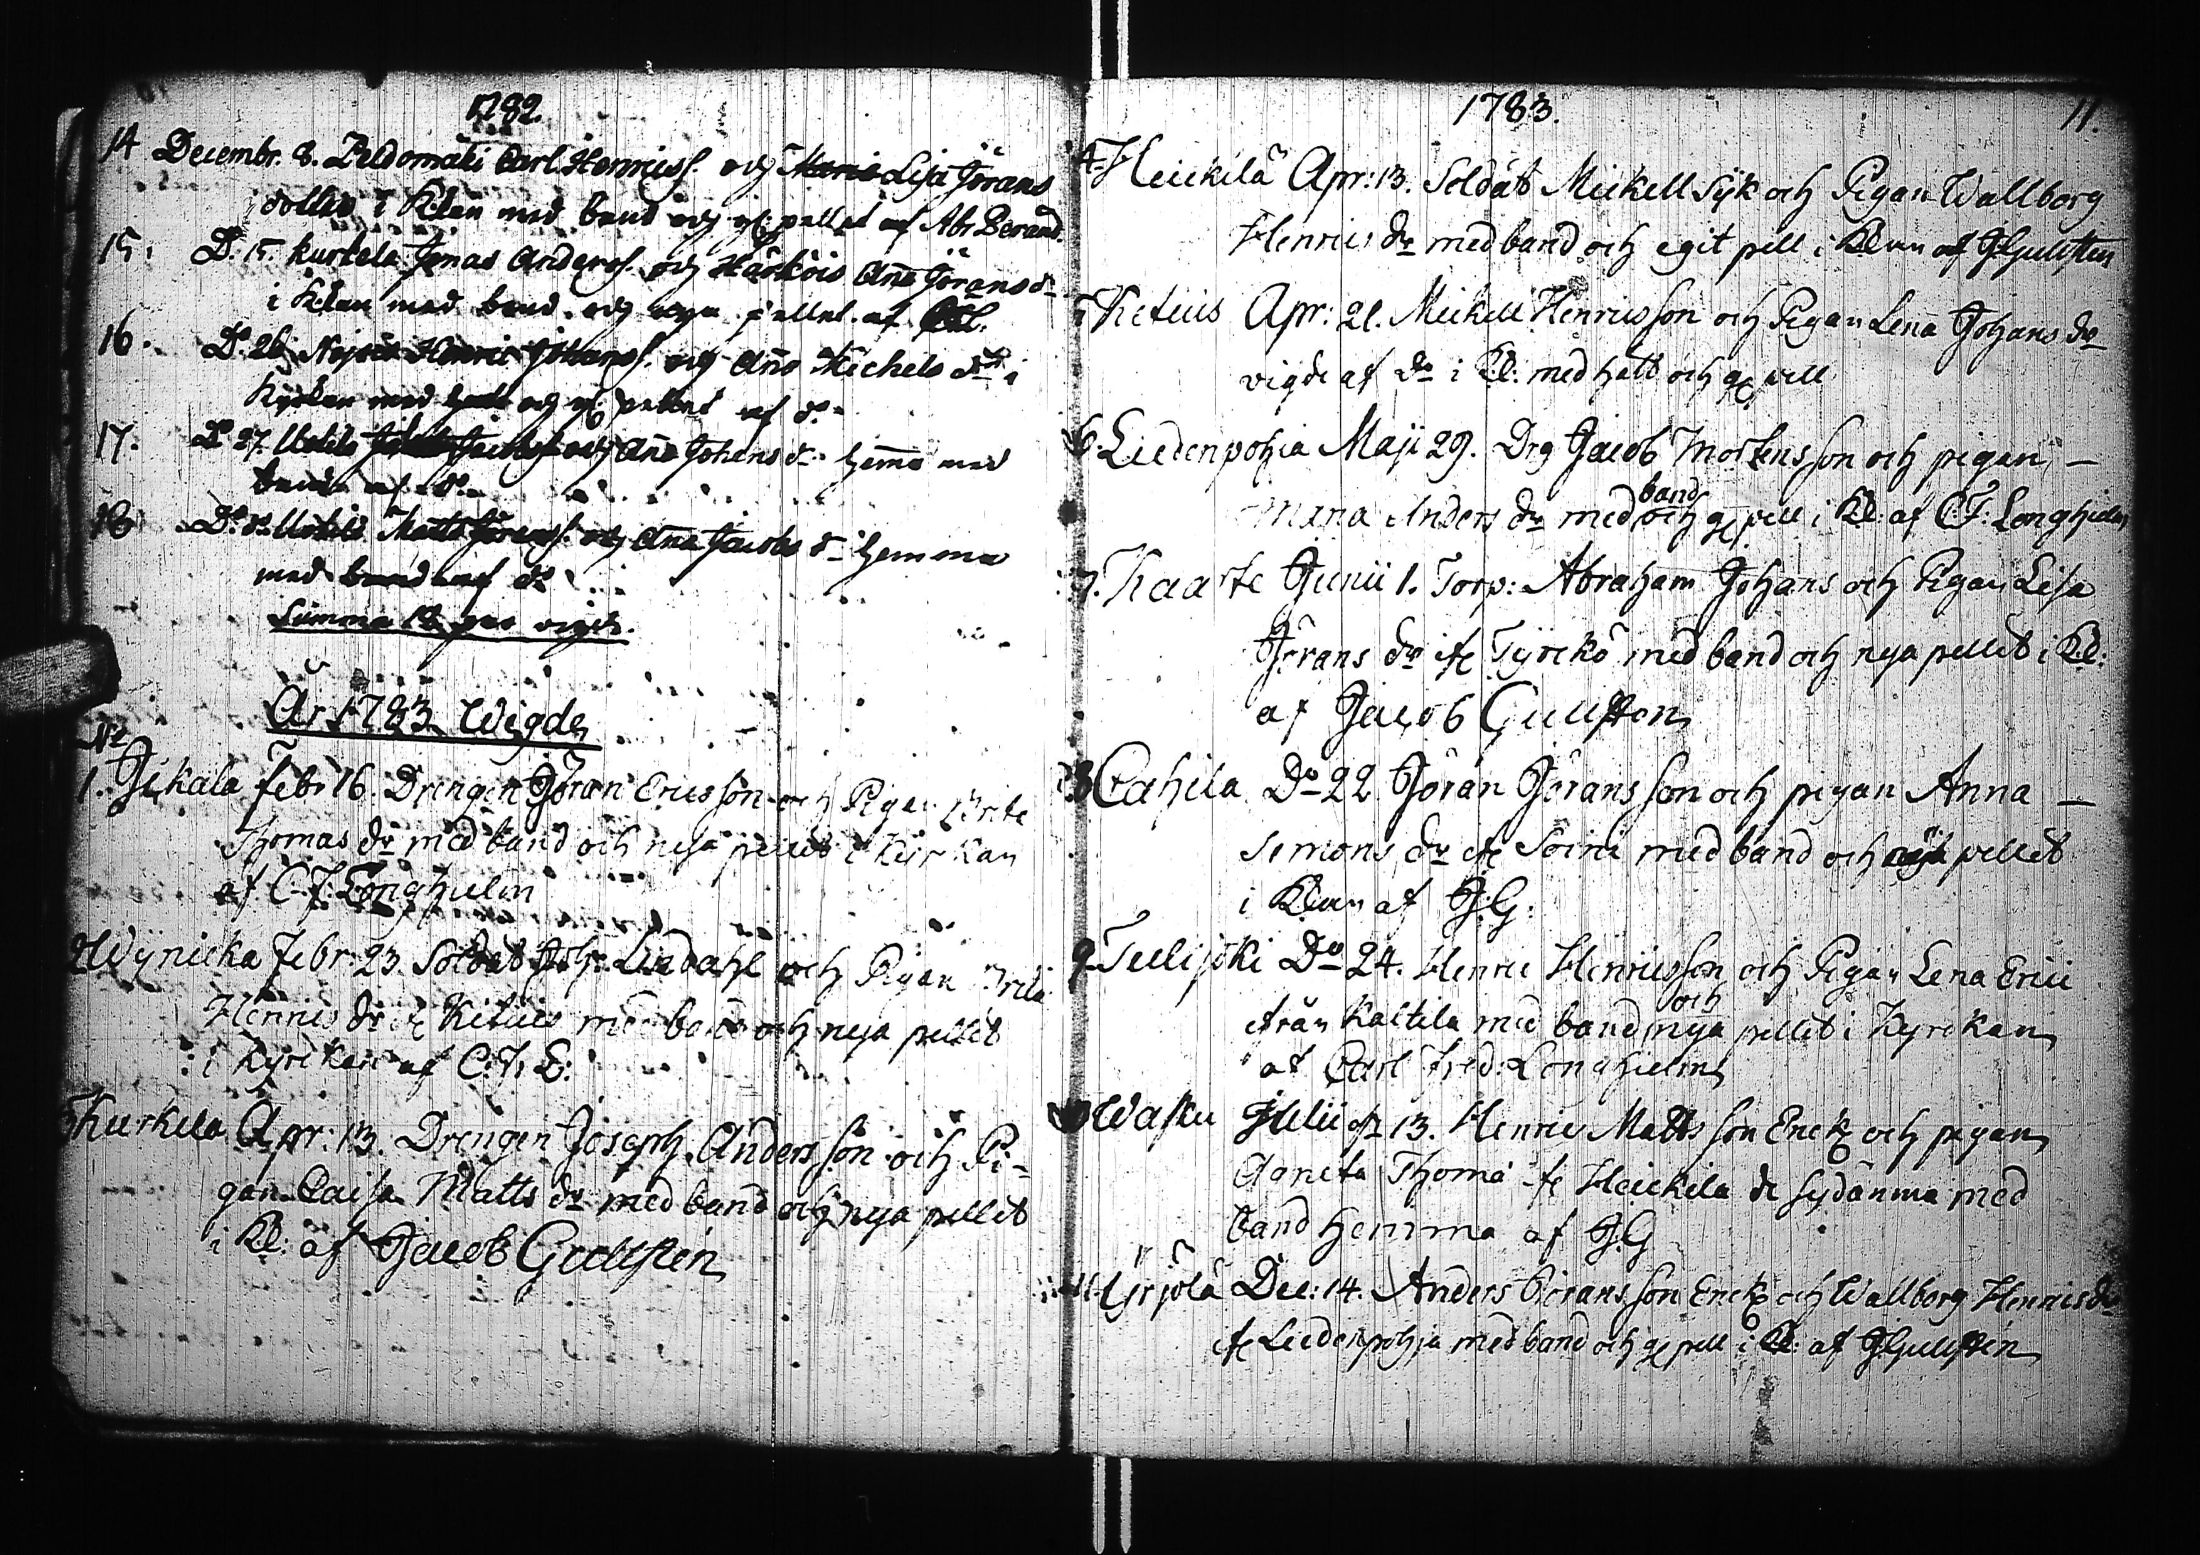 1782.
14 Decembr. 8. Peldomäki Carl Henrics. och Maria Lisa Görans
dotter i K:kan med band och gl pellet af Abr Perand.
15. D. 15. Kurkela Jonas Anderss. och Härköis Ana Görans dr
i K:kan med band och nya pellet af
16. Do 26 Henric Johans. och Ana Michels dr i
Kyrkan med och gl pellet af do
17. Do 27. Uotila och Ana Johans dr hema med
band af do
18 Do do Uotila Matts Görans. och Ana Jacobs dr hemma
med band af do
Summa 18 par vigde.
År 1783 Wigde
No
1. Febr 16. Drengen Göran Ericsson och Pigan Brita
Thomas dr med band och nya pellet i Kyrkan
af C. F. Longhielm
2 Wynicka Febr: 23 Soldat Joh: Lindahl och Pigan
Henrics dr ifr Ketuis med band och nya pellet
i Kyrckan af C. F. L:
3 Kurkela Apr: 13. Drengen Joseph Anders son och Pi-
gan Caisa Matts dr med band och nya pellet
i K:k: af Jacob Gullsten
1783. 11.
4. Heickilä Apr: 13. Soldat Mickell Syk och Pigan Wallborg
Henrics dr med band och egit pell i K:kan af J Gullsten
5 Ketuis Apr: 21. Mickell Henricsson och Pigan Lena Johans dr
vigde af do i K:k: med hatt och gl pell
6 Liedenpohja Maji 29. Drg Jacob Mortensson och pigan —
Maria Anders dr med band och gl pell i K:k: af C: F: Longhielm
7. Kaarte Junii 1. Torp: Abraham Johans och Pigan Lisa
Jörans dr ifr Tyrckö med band och nya pellet i K:k:
af Jacob Gullsten
8 Cahila Do 22 Jöran Jörans son och pigan Anna —
Simons dr ifr Soini med band och nya pellet
i K:kan af J: G:
9. Tulijoki Do 24. Henric Henricsson och Pigan Lena Erici
ifrån Kaltila med band och nya pellet i Kyrckan
af Carl Fred: Longhielm
10 Wasku Julii 13. Henric Matts son Enck och pigan
Agneta Thomæ ifr Heickila de Sydänma med
band hemma af J. G
11 Yrjölä Dec: 14. Anders Görans son Enck och Wallborg Henricsdr
ifr Liedenpohja med band och gl pell i K:k: af J: Gullsten